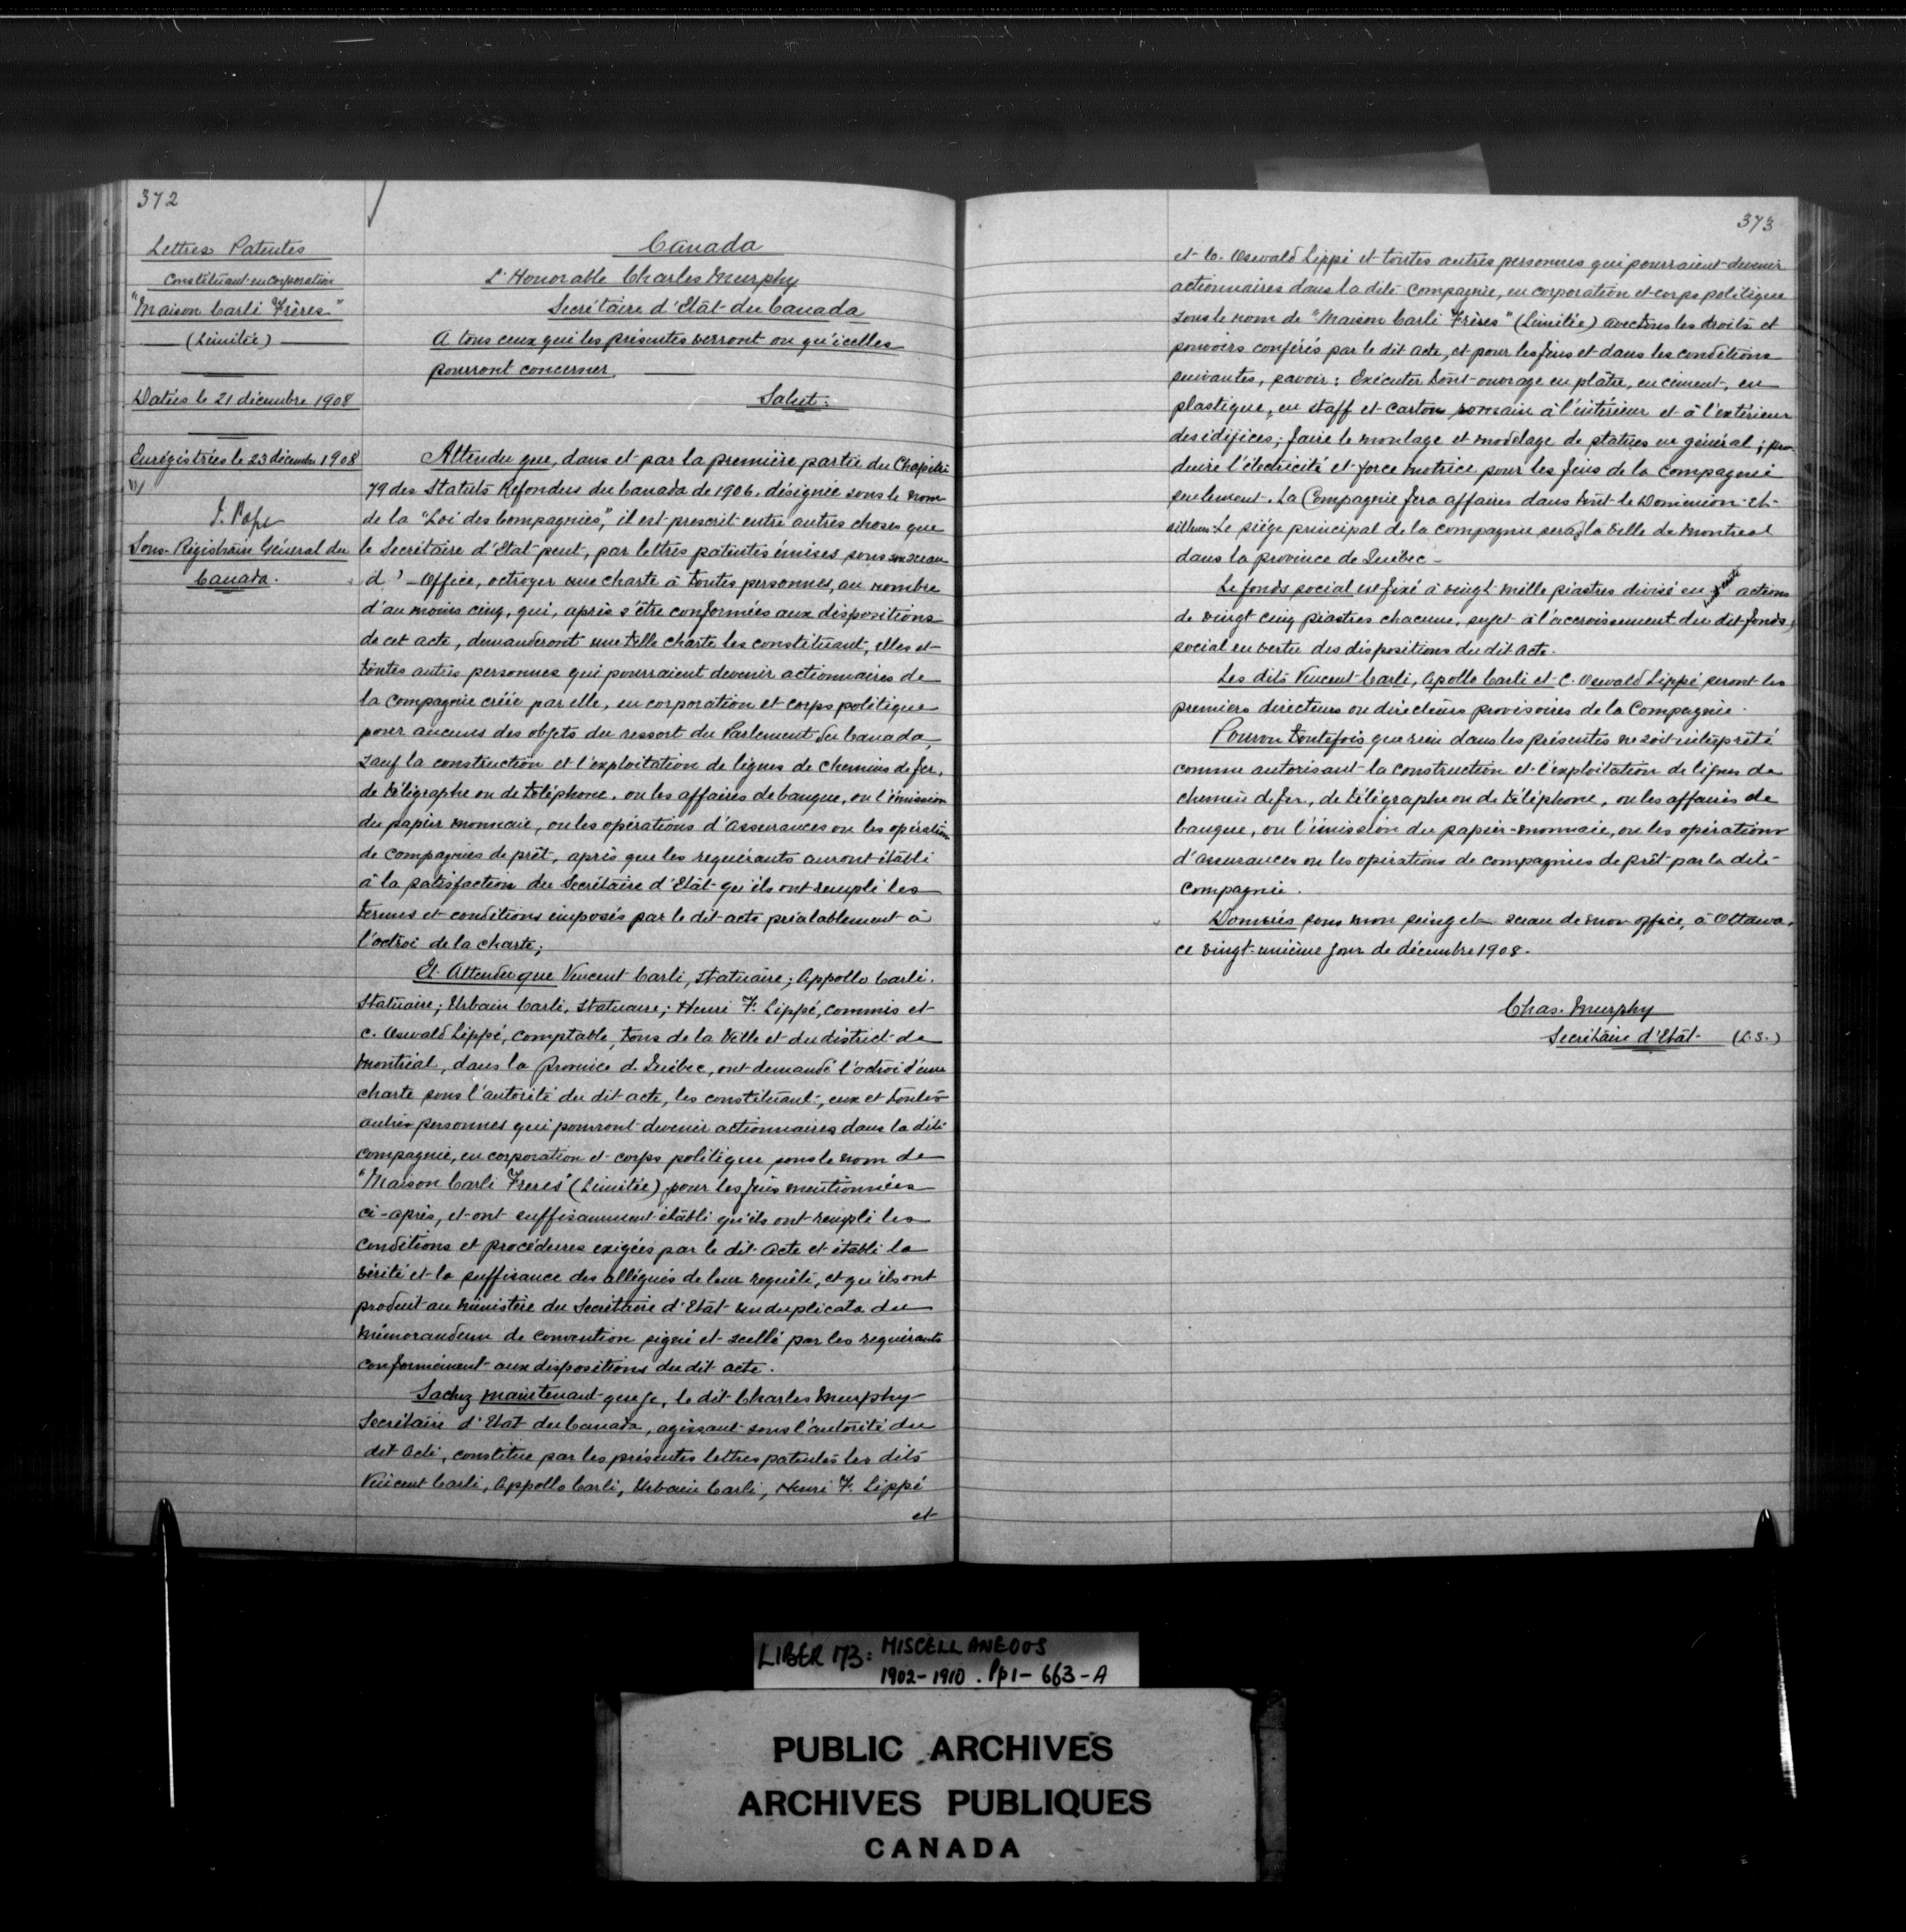 372
Lettres Patentes
Constituant en corporation
"Maison Carli Frères"
(Limitée)
Datées le 21 décembre 1908
Enregistrées le 23 décembre 1908
J. Pope
Sous-Régistraire Général du
Canada.
Canada
L'Honorable Charles Murphy
Secrétaire d'Etât du Canada
A tous ceux qui les présentes verront ou qu'icelles
pourront concerner,
Salut:
Attendu que, dans et par la première partie du Chapitre
79 des Statuts Refondus du Canada de 1906, désignée sous le nom
de la "Loi des Compagnies," il est prescrit entre autres choses que
le Secrétaire d'Etat peut, par lettres patentes émises sous son sceau
d'Office, octroyer une charte à toutes personnes, au nombre
d'au moins cinq, qui, après s'être conformées aux dispositions
de cet acte, demanderont une telle charte les constituant, elles et
toutes autres personnes qui pourraient devenir actionnaires de
la Compagnie créée par elle, en corporation et corps politique
pour aucuns des objets du ressort du Parlement du Canada,
sauf la construction et l'exploitation de lignes de chemins de fer,
de télégraphe ou de téléphone, ou les affaires de banque, ou l'émission
du papier monnaie, ou les opérations d'assurances ou les opérations
de compagnies de prêt, après que les requérants auront établi
à la satisfaction du Secrétaire d'Etât qu'ils ont rempli les
termes et conditions imposés par le dit acte préalablement à
l'octroi de la charte;
Et Attendu que Vincent Carli, statuaire; Appollo Carli,
Statuaire; Urbain Carli, Statuaire; Henri F. Lippé, commis et
C. Oswald Lippé, comptable, tous de la Ville et du district de
Montréal, dans la province de Québec, ont demandé l'octroi d'une
charte sous l'autorité du dit acte, les constituant, eux et toutes
autres personnes qui pourront devenir actionnaires dans la dite
compagnie, en corporation et corps politique sous le nom de
"Maison Carli Freres" (Limitée) pour les fins mentionnées
ci-après, et ont suffisamment établi qu'ils ont rempli les
Conditions et procédures exigées par le dit Acte et établi la
vérité et la suffisance des allégués de leur requête, et qu'ils ont
produit au Ministère du Secrétaire d'Etât un duplicata du
Mémorandum de convention signé et scellé par les requérants
conformément aux dispositions du dit acte.
Sachez maintenant que je, le dit Charles Murphy
Secrétaire d'Etat du Canada, agissant sous l'autorité du
dit Acte, constitue par les présentes lettres patentes les dits
Vincent Carli, Appollo Carli, Urbain Carli, Henri F. Lippé
et
373
et C. Oswald Lippé et toutes autres personnes qui pourraient devenir
actionnaires dans la dite compagnie, en corporation et corps politique
sous le nom de "Maison Carli Frères" (Limitée) avec tous les droits et
pouvoirs conférés par le dit acte, et pour les fins et dans les conditions
suivantes, savoir: Exécuter tout ouvrage en plâtre, en ciment, en
plastique, en staff et carton romain à l'intérieur et à l'extérieur
des édifices; faire le moulage et modelage de statues en général; pro-
duire l'électricité et force motrice pour les fins de la compagnie
seulement. La Compagnie fera affaires dans tout le Dominion et
ailleurs. Le siége principal de la compagnie sera la ville de Montreal
dans la province de Québec.
Le fonds social est fixé à vingt mille piastres divisé en actions
de vingt cinq piastres chacune, sujet à l'accroissement du dit fonds
social en vertu des dispositions du dit acte.
Les dits Vincent Carli, Apollo Carli et C. Oswald Lippé seront les
premiers directeurs ou directeurs provisoires de la Compagnie.
Pourvu toutefois que rien dans les présentes ne soit interprété
comme autorisant la construction et l'exploitation de lignes de
chemin de fer, de télégraphe ou de téléphone, ou les affaires de
banque, ou l'émission du papier-monnaie, ou les opérations
d'assurances ou les opérations de compagnies de prêt par la dite
compagnie.
Données sous mon seing et sceau de mon office, à Ottawa,
ce vingt-unième jour de décembre 1908.
Chas. Murphy
Secrétaire d'Etât (L.S.)
LIBER 173: MISCELLANEOUS
1902-1910. Pp 1-663-A
PUBLIC ARCHIVES
ARCHIVES PUBLIQUES
CANADA